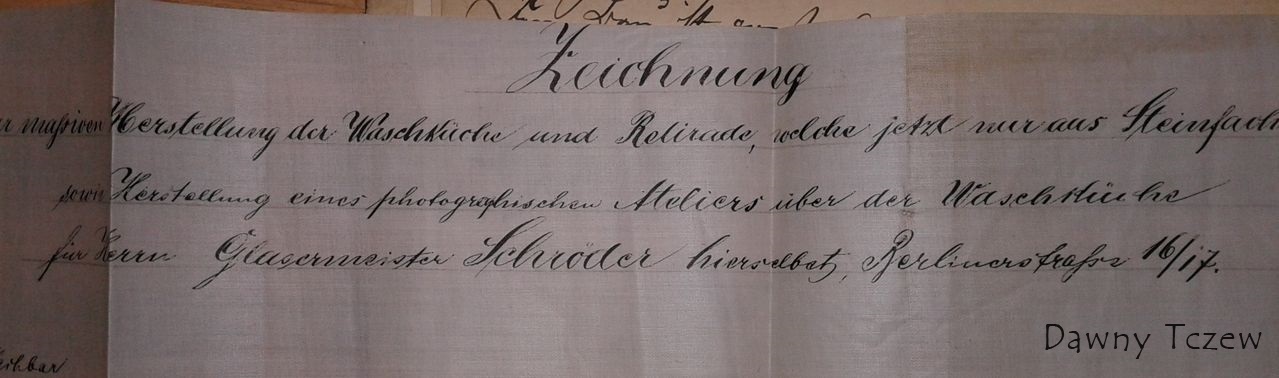 Zeichnung
massiven Herstellung der Waschküche und Retirade, welche jetzt nur aus Steinfach
sowie Herstellung eines photographischen Ateliers über der Waschküche
für Herrn Glasermeister Schröder hierselbst, Berlinerstraße 16/17.
Dawny Tczew